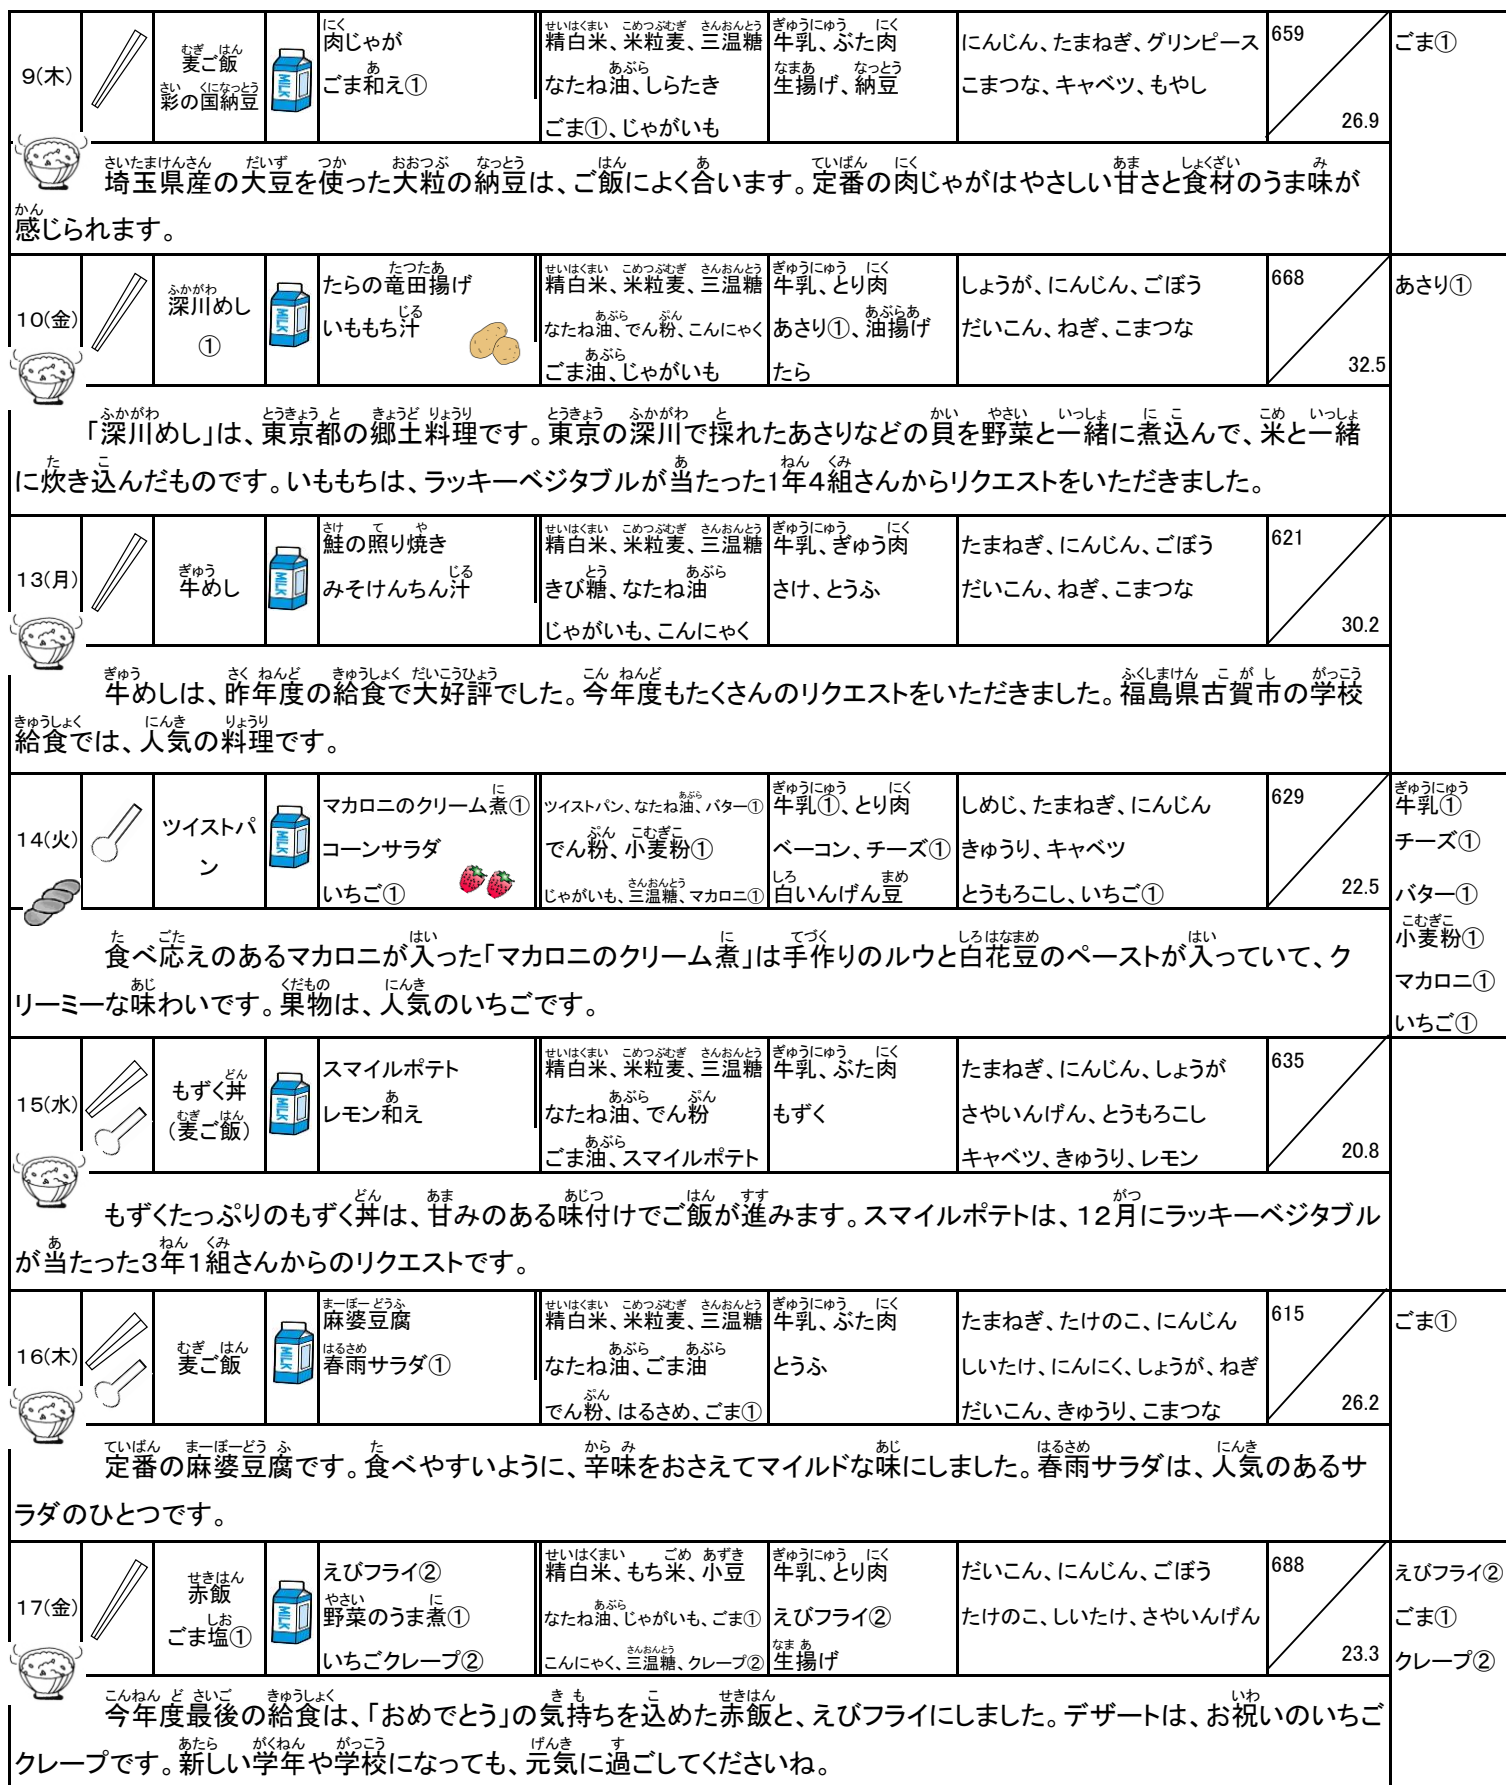 9(木)
麦ご飯
彩の国納豆
MILK
肉じゃが
ごま和え①
精白米、米粒麦、三温糖
なたね油、しらたき
ごま①、じゃがいも
牛乳、ぶた肉
生揚げ、納豆
にんじん、たまねぎ、グリンピース
こまつな、キャベツ、もやし
659
26.9
ごま①
埼玉県産の大豆を使った大粒の納豆は、ご飯によく合います。定番の肉じゃがはやさしい甘さと食材のうま味が
感じられます。
10(金)
深川めし
①
MILK
たらの竜田揚げ
いももち汁
精白米、米粒麦、三温糖
なたね油、でん粉、こんにゃく
ごま油、じゃがいも
牛乳、とり肉
あさり①、油揚げ
たら
しょうが、にんじん、ごぼう
だいこん、ねぎ、こまつな
668
32.5
あさり①
「深川めし」は、東京都の郷土料理です。東京の深川で採れたあさりなどの貝を野菜と一緒に煮込んで、米と一緒
に炊き込んだものです。いももちは、ラッキーベジタブルが当たった1年4組さんからリクエストをいただきました。
13(月)
牛めし
MILK
鮭の照り焼き
みそけんちん汁
精白米、米粒麦、三温糖
きび糖、なたね油
じゃがいも、こんにゃく
牛乳、ぎゅう肉
さけ、とうふ
たまねぎ、にんじん、ごぼう
だいこん、ねぎ、こまつな
621
30.2
牛めしは、昨年度の給食で大好評でした。今年度もたくさんのリクエストをいただきました。福島県古賀市の学校
給食では、人気の料理です。
14(火)
ツイストパ
ン
MILK
マカロニのクリーム煮①
コーンサラダ
いちご①
ツイストパン、なたね油、バター①
でん粉、小麦粉①
じゃがいも、三温糖、マカロニ①
牛乳①、とり肉
ベーコン、チーズ①
白いんげん豆
しめじ、たまねぎ、にんじん
きゅうり、キャベツ
とうもろこし、いちご①
629
22.5
牛乳①
チーズ①
バター①
小麦粉①
マカロニ①
いちご①
食べ応えのあるマカロニが入った「マカロニのクリーム煮」は手作りのルウと白花豆のペーストが入っていて、ク
リーミーな味わいです。果物は、人気のいちごです。
15(水)
もずく丼
(麦ご飯)
MILK
スマイルポテト
レモン和え
精白米、米粒麦、三温糖
なたね油、でん粉
ごま油、スマイルポテト
牛乳、ぶた肉
もずく
たまねぎ、にんじん、しょうが
さやいんげん、とうもろこし
キャベツ、きゅうり、レモン
635
20.8
もずくたっぷりのもずく丼は、甘みのある味付けでご飯が進みます。スマイルポテトは、12月にラッキーベジタブル
が当たった3年1組さんからのリクエストです。
16(木)
麦ご飯
MILK
麻婆豆腐
春雨サラダ①
精白米、米粒麦、三温糖
なたね油、ごま油
でん粉、はるさめ、ごま①
牛乳、ぶた肉
とうふ
たまねぎ、たけのこ、にんじん
しいたけ、にんにく、しょうが、ねぎ
だいこん、きゅうり、こまつな
615
26.2
ごま①
定番の麻婆豆腐です。食べやすいように、辛味をおさえてマイルドな味にしました。春雨サラダは、人気のあるサ
ラダのひとつです。
17(金)
赤飯
ごま塩①
MILK
えびフライ②
野菜のうま煮①
いちごクレープ②
精白米、もち米、小豆
なたね油、じゃがいも、ごま①
こんにゃく、三温糖、クレープ②
牛乳、とり肉
えびフライ②
生揚げ
だいこん、にんじん、ごぼう
たけのこ、しいたけ、さやいんげん
688
23.3
えびフライ②
ごま①
クレープ②
今年度最後の給食は、「おめでとう」の気持ちを込めた赤飯と、えびフライにしました。デザートは、お祝いのいちご
クレープです。新しい学年や学校になっても、元気に過ごしてくださいね。